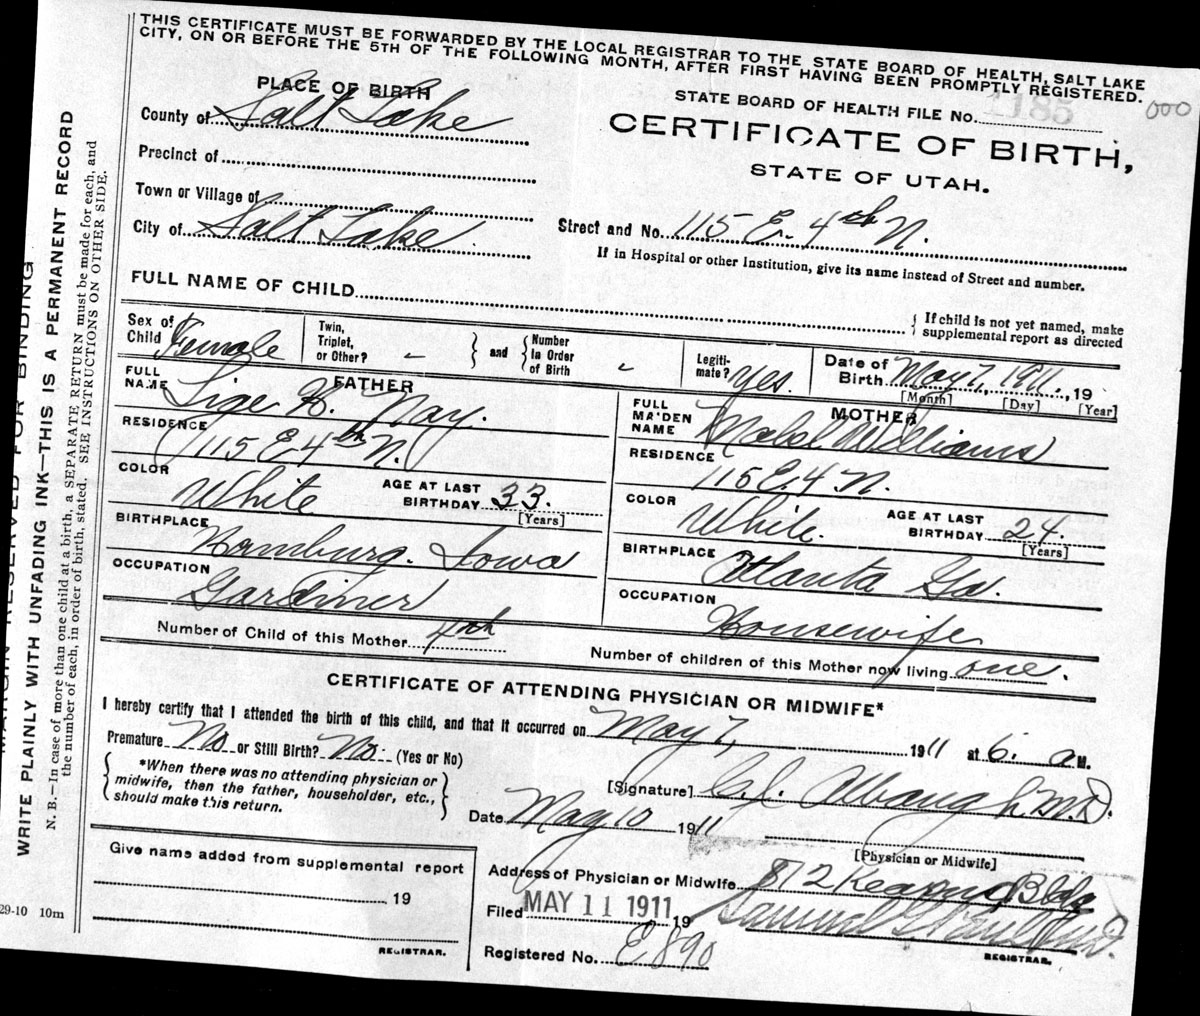 THIS CERTIFICATE MUST BE FORWARDED BY THE LOCAL REGISTRAR TO THE STATE BOARD OF HEALTH, SALT LAKE
CITY, ON OR BEFORE THE 5TH OF THE FOLLOWING MONTH, AFTER FIRST HAVING BEEN PROMPTLY REGISTERED.
000
PLACE OF BIRTH
STATE BOARD OF HEALTH FILE No. 1185
County of Salt Lake
CERTIFICATE OF BIRTH,
STATE OF UTAH.
Precinct of
Town or Village of
City of Salt Lake.
Street and No. 115 E. 4th N.
If in Hospital or other Institution, give its name instead of Street and number.
FULL NAME OF CHILD
{ If child is not yet named, make
supplemental report as directed
Sex of
Child Female
Twin,
Triplet,
or Other? "
} and { Number
In Order
of Birth "
Legiti-
mate? Yes.
Date of
Birth May 7, 1911., 19
[Month] [Day] [Year]
FATHER
FULL
NAME H. Nay.
RESIDENCE
115 E 4th N.
COLOR
White
AGE AT LAST
BIRTHDAY 33.
[Years]
BIRTHPLACE
Hamburg. Iowa
OCCUPATION
Gardiner
MOTHER
FULL
MAIDEN
NAME Mabel Williams
RESIDENCE
115 E. 4 N.
COLOR
White.
AGE AT LAST
BIRTHDAY 24.
[Years]
BIRTHPLACE
Atlanta Ga.
OCCUPATION
Housewife
Number of Child of this Mother 4th
Number of children of this Mother now living one.
CERTIFICATE OF ATTENDING PHYSICIAN OR MIDWIFE*
I hereby certify that I attended the birth of this child, and that it occurred on May 7, 1911 at 6. a M.
Premature No or Still Birth? No. (Yes or No)
{ *When there was no attending physician or
midwife, then the father, householder, etc.,
should make this return. }
[Signature] C. J. Albaugh M.D.
Date May 10 1911
[Physician or Midwife]
Give name added from supplemental report
19
REGISTRAR.
Address of Physician or Midwife 812 Kearns Bldg
Filed MAY 11 1911 19 Samuel G.
REGISTRAR.
Registered No. E890
MARGIN RESERVED FOR BINDING
WRITE PLAINLY WITH UNFADING INK—THIS IS A PERMANENT RECORD
N. B.—In case of more than one child at a birth, a SEPARATE RETURN must be made for each, and
the number of each, in order of birth, stated. SEE INSTRUCTIONS ON OTHER SIDE.
29-10 10m